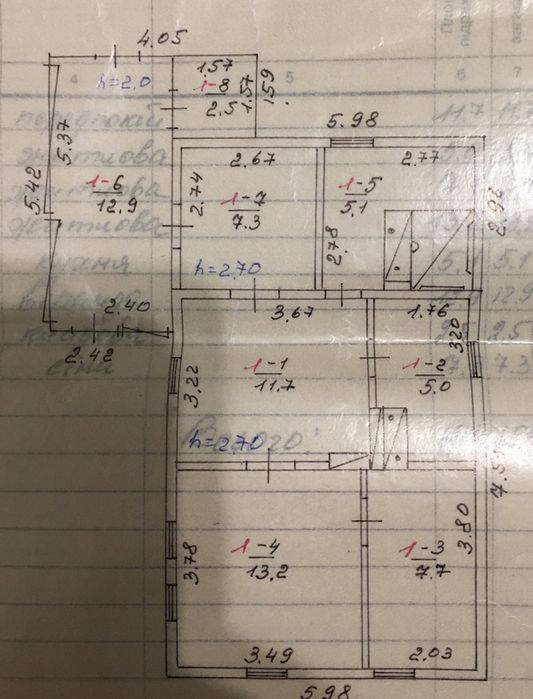 4.05
h=2.0
1.57
1-8
2.5
1.57
1.59
5.37
5.42
1-6
12.9
2.40
2.42
5.98
2.67
2.74
1-7
7.3
h=2.70
2.77
1-5
5.1
2.78
2.92
3.67
3.22
1-1
11.7
h=2.70
1.76
3.20
1-2
5.0
3.78
1-4
13.2
3.49
3.80
1-3
7.7
2.03
5.98
4
5
6
7
передпокій
житлова
житлова
житлова
кухня
Всього:
11.7
5.1
5.1
12.9
2.5
7.3